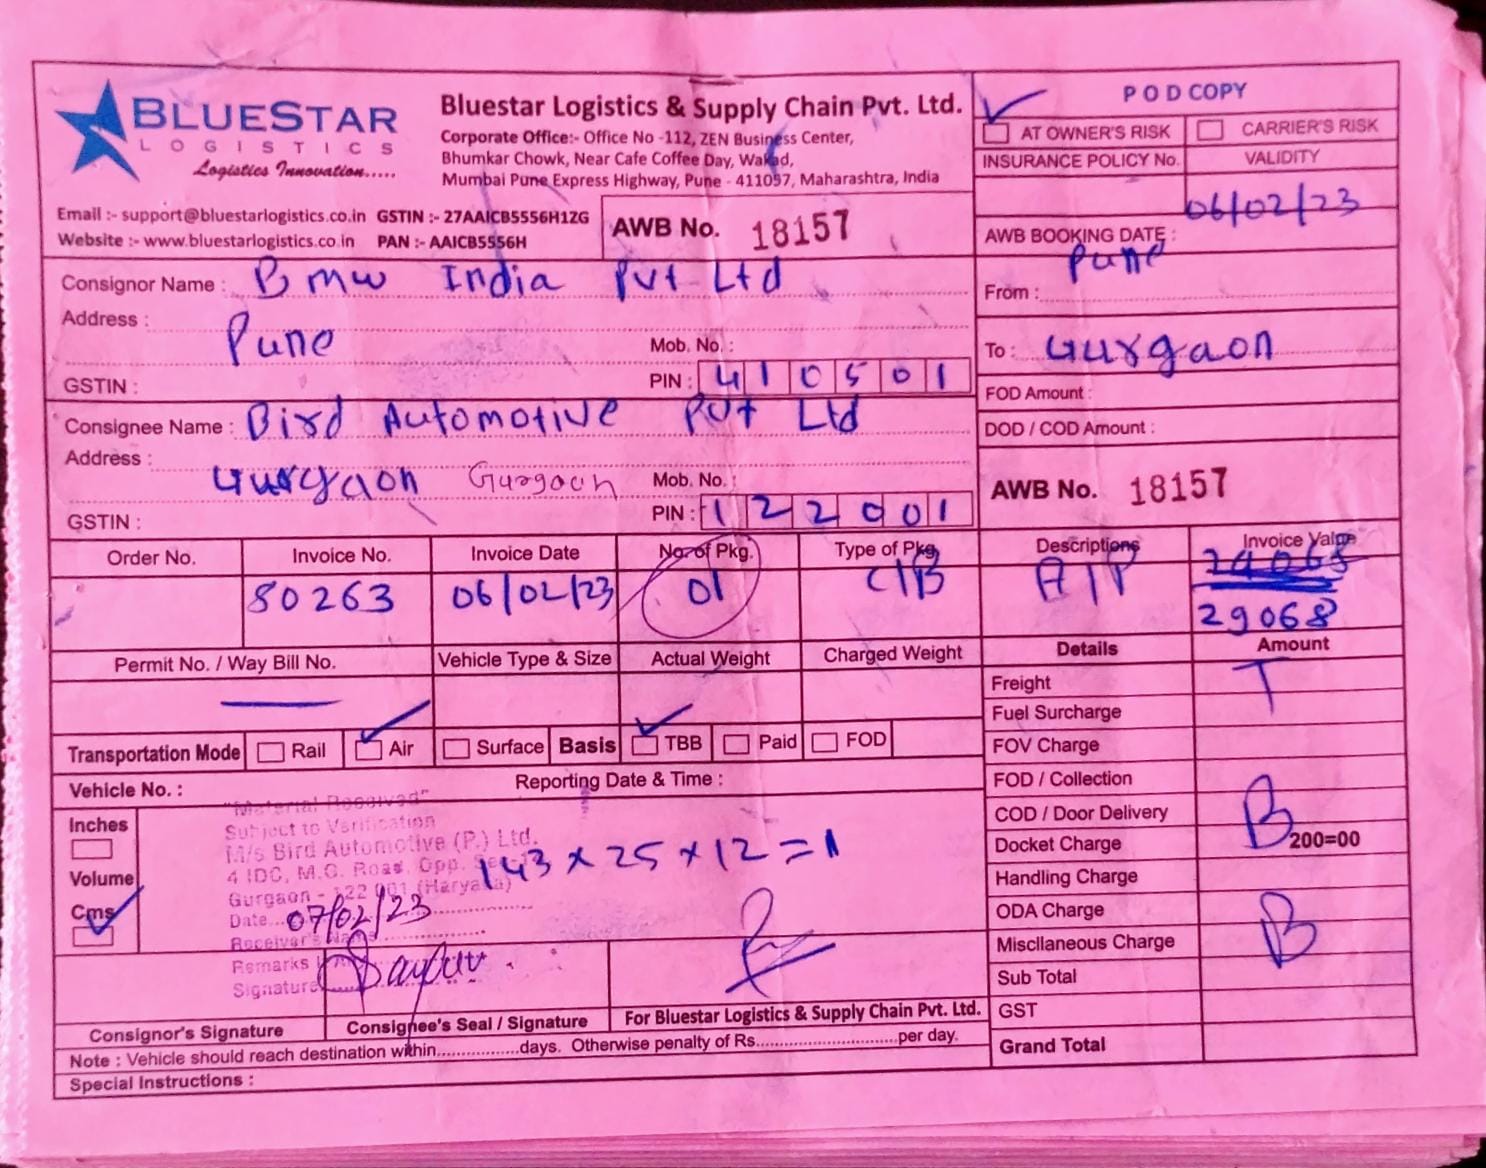 BLUESTAR
LOGISTICS
Logistics Innovation.....
Bluestar Logistics & Supply Chain Pvt. Ltd.
Corporate Office:- Office No -112, ZEN Business Center,
Bhumkar Chowk, Near Cafe Coffee Day, Wakad,
Mumbai Pune Express Highway, Pune - 411057, Maharashtra, India
Email :- support@bluestarlogistics.co.in GSTIN :- 27AAICB5556H1ZG
Website :- www.bluestarlogistics.co.in PAN :- AAICB5556H
AWB No. 18157
POD COPY
AT OWNER'S RISK CARRIER'S RISK
INSURANCE POLICY No. VALIDITY
06/02/23
AWB BOOKING DATE :
Pune
From :
To : Gurgaon
FOD Amount :
DOD / COD Amount :
AWB No. 18157
Consignor Name : Bmw India Pvt Ltd
Address :
Pune Mob. No. :
GSTIN : PIN : 410501
Consignee Name : Bird Automotive Pvt Ltd
Address :
Gurgaon Gurgaon Mob. No. :
GSTIN : PIN : 122001
Order No. Invoice No. Invoice Date No. of Pkg. Type of Pkg. Descriptions Invoice Value
80263 06/02/23 01 C/B A/P 29068
Permit No. / Way Bill No. Vehicle Type & Size Actual Weight Charged Weight Details Amount
Freight T
Fuel Surcharge
Transportation Mode Rail Air Surface Basis TBB Paid FOD
FOV Charge
Vehicle No. : Reporting Date & Time :
FOD / Collection
COD / Door Delivery B
Docket Charge 200=00
Handling Charge
ODA Charge B
Miscllaneous Charge
Sub Total
GST
Grand Total
Inches
Volume
Cms
"Material Received"
Subject to Verification
M/s Bird Automotive (P.) Ltd.
4 IDC, M.G. Road, Opp.
Gurgaon - 122 001 (Haryana)
Date... 07/02/23
Receiver's Name
Remarks
Signature
143 x 25 x 12 = 1
Consignor's Signature Consignee's Seal / Signature For Bluestar Logistics & Supply Chain Pvt. Ltd.
Note : Vehicle should reach destination within................days. Otherwise penalty of Rs...............................per day.
Special Instructions :